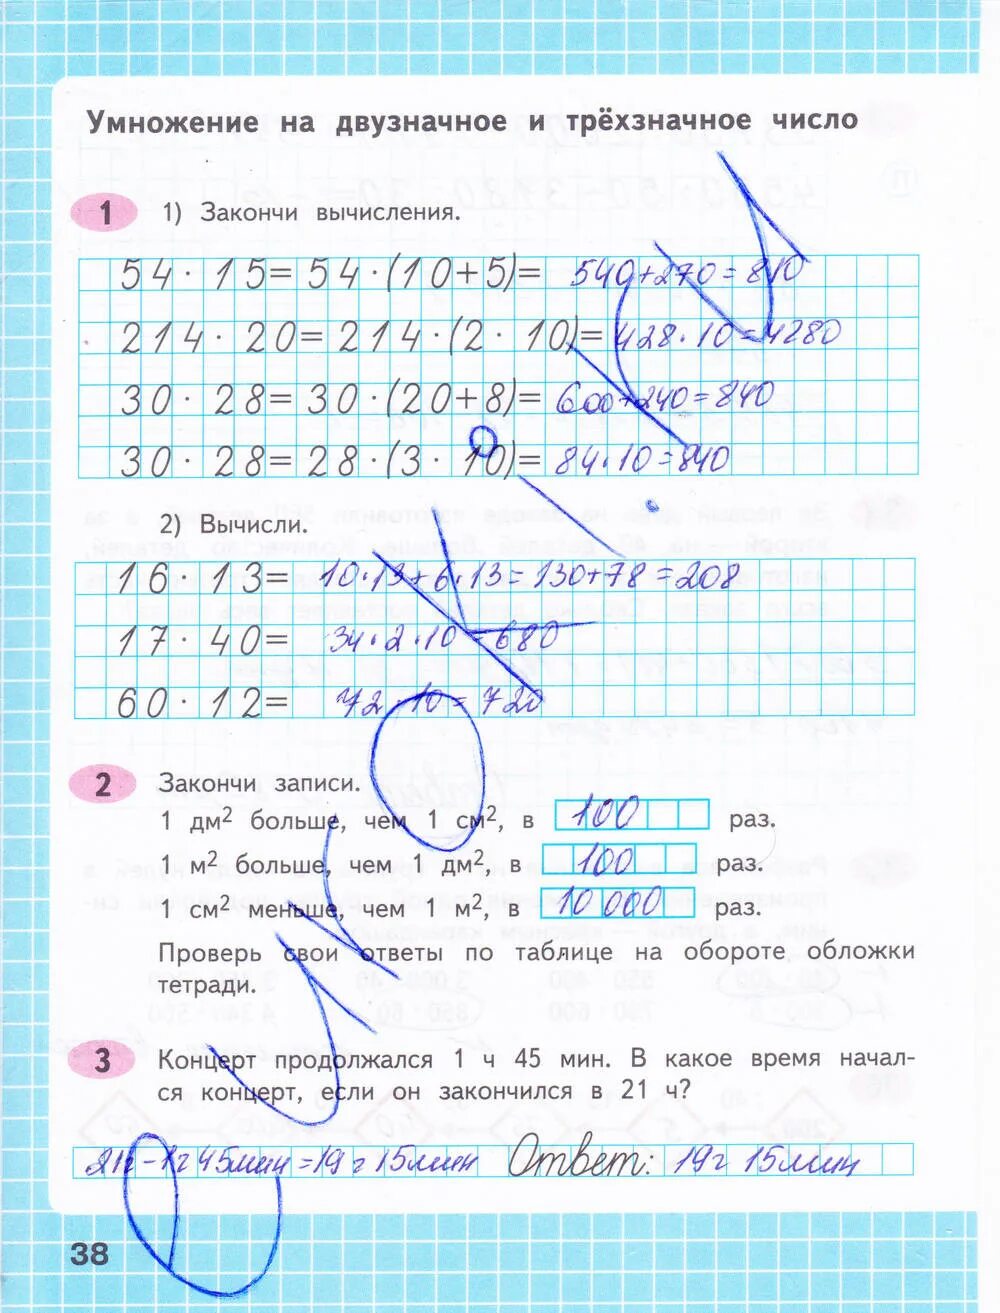 Умножение на двузначное и трёхзначное число
1 1) Закончи вычисления.
54 · 15 = 54 · (10 + 5) = 540 + 270 = 810
214 · 20 = 214 · (2 · 10) = 428 · 10 = 4280
30 · 28 = 30 · (20 + 8) = 600 + 240 = 840
30 · 28 = 28 · (3 · 10) = 84 · 10 = 840
2) Вычисли.
16 · 13 = 10 · 13 + 6 · 13 = 130 + 78 = 208
17 · 40 = 34 · 2 · 10 = 680
60 · 12 = 72 · 10 = 720
2 Закончи записи.
1 дм² больше, чем 1 см², в 100 раз.
1 м² больше, чем 1 дм², в 100 раз.
1 см² меньше, чем 1 м², в 10 000 раз.
Проверь свои ответы по таблице на обороте обложки
тетради.
3 Концерт продолжался 1 ч 45 мин. В какое время начал-
ся концерт, если он закончился в 21 ч?
21ч - 1ч 45мин = 19ч 15мин Ответ: 19ч 15мин
38